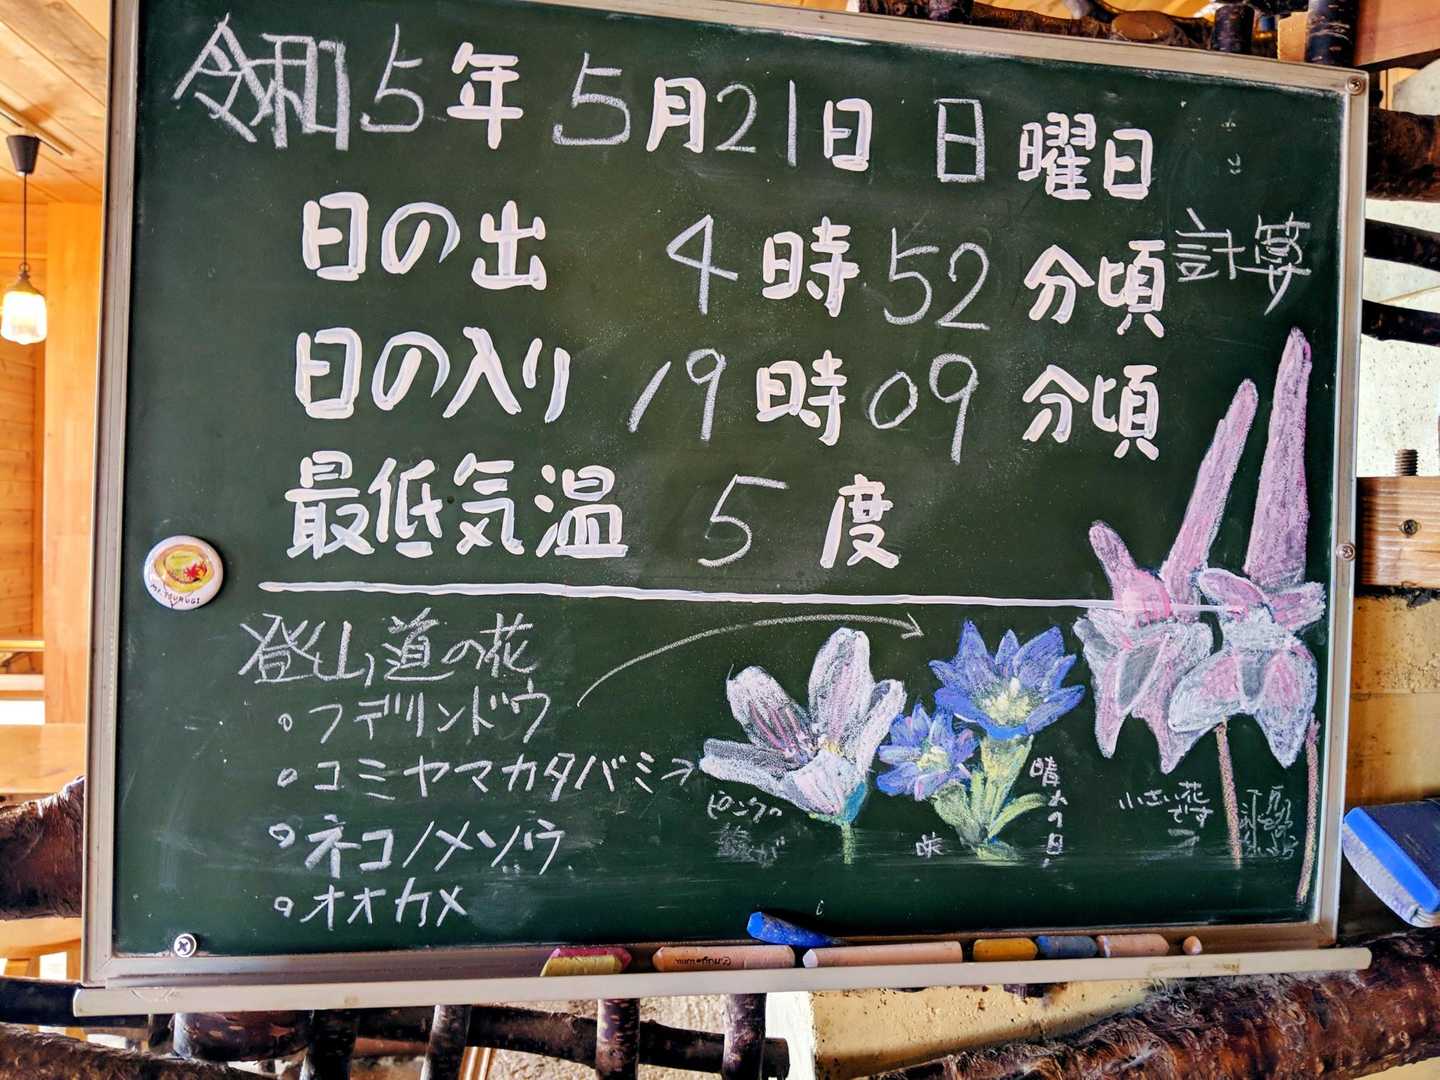 令和5年 5月21日 日曜日
日の出 4時52分頃 計算
日の入り 19時09分頃
最低気温 5度
登山道の花
。フデリンドウ
。コミヤマカタバミ→
。ネコノメソウ
。オオカメ
ピンクの
線が
晴れの日
咲
小さい花
です
MT.TSURUGI